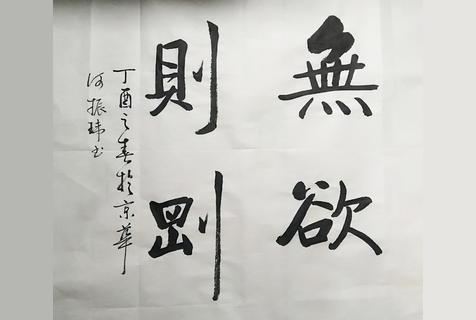 無欲
則剛
丁酉之春於京華
振玮书